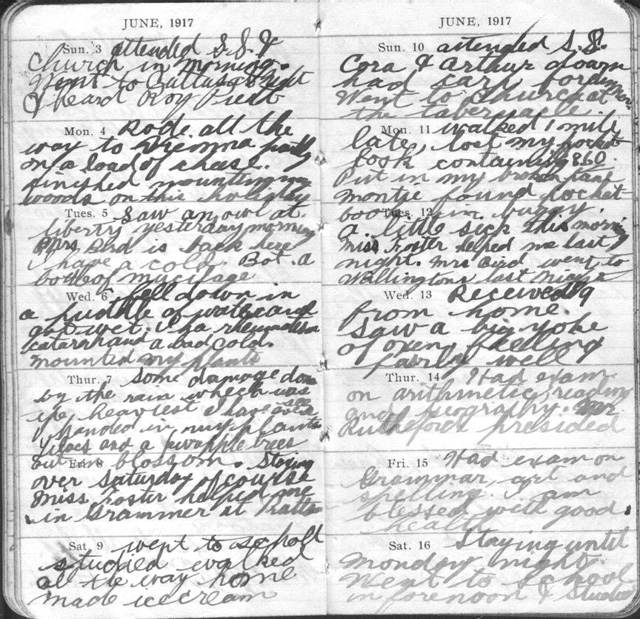 JUNE, 1917
Sun. 3 attended S.S. &
Church in morning.
Went to
& heard Roy
Mon. 4 Rode all the
way to Vienna
on a load of cheese.
finished mounting my
woods on this holiday
Tues. 5 Saw an owl at
liberty yesterday morning
Mrs. Bird is back here
I have a cold. Bot. a
bottle of mucilage
Wed. 6 fell down in
a puddle of water and
got wet. I ha rheumatism
catarrh and a bad cold.
mounted my plants
Thur. 7 Some damage done
by the rain which was
the heaviest I have ever seen
I handed in my plants
lilacs and a pineapple trees
out in blossom. Staying
Fri. 8
over Saturday of course
Miss Foster helped me
in Grammer at Pratts
Sat. 9 went to school
studied walked
all the way home
made ice cream
JUNE, 1917
Sun. 10 attended S.S.
Cora & Arthur down
had car for dinner
Went to Church at
the tabernacle
Mon. 11 walked 1 mile
late, lost my pocket
book containing 8.60.
Put in my broken pane
Montie found pocket
book in buggy.
Tues. 12
a little sick this morning
Miss Foster helped me last
night. Mrs Bird went to
Wellingtons last night
Wed. 13 Received
from home.
Saw a big yoke
of oxen, feeling
fairly well
Thur. 14 Had exam
on arithmetic, reading
and geography.
Rutherford presided
Fri. 15 Had exam on
Grammar, art and
spelling. I am
blessed with good
health
Sat. 16 Staying until
Monday night
Went to School
in forenoon & Studied